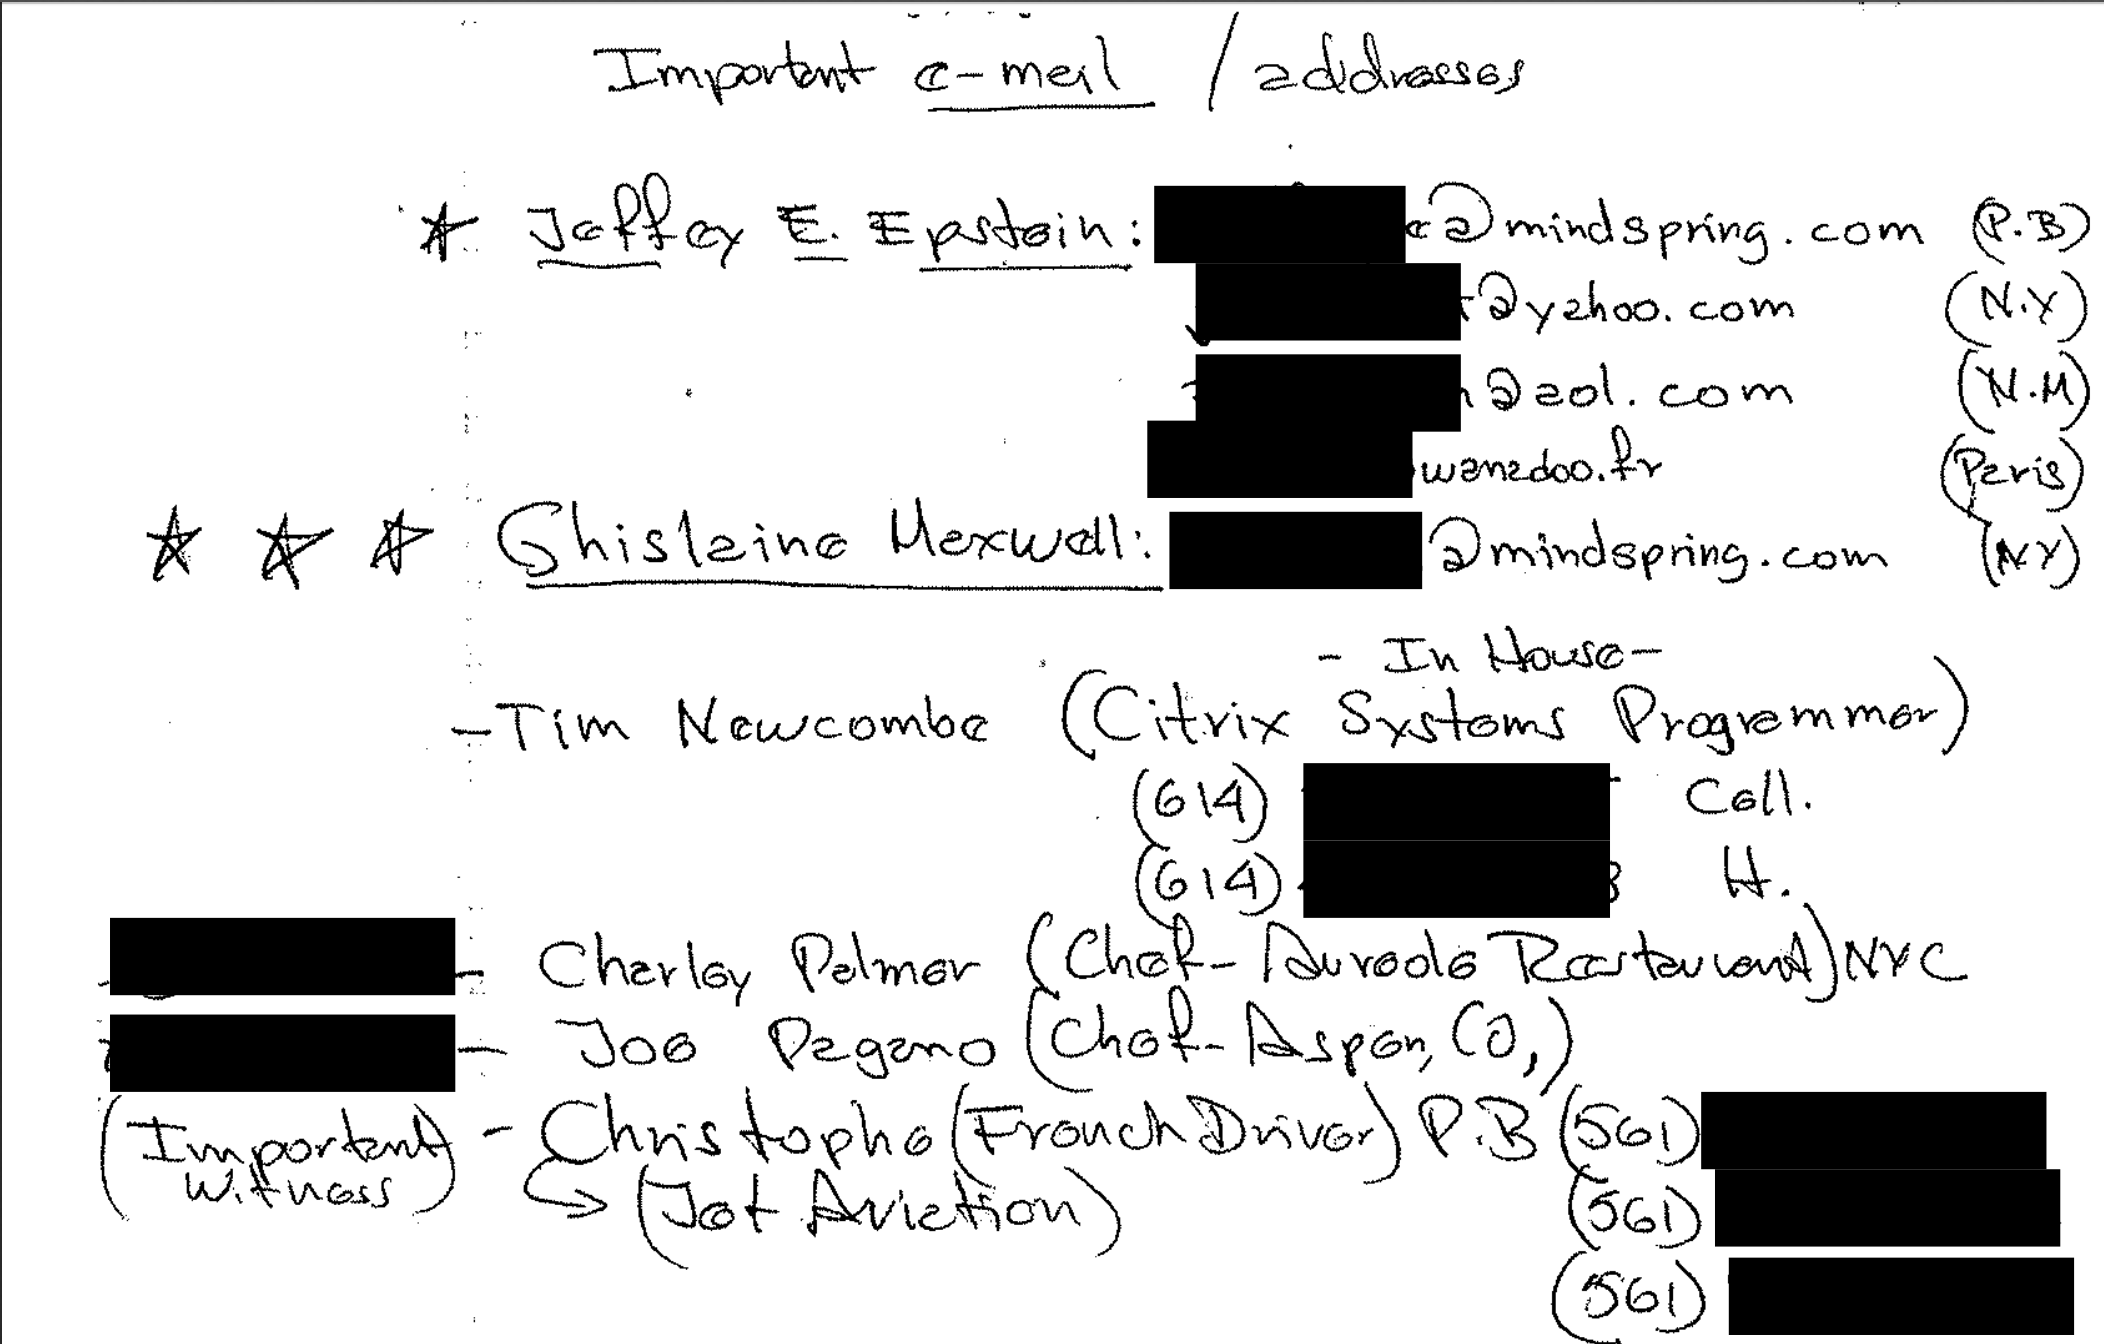 Important e-mail / addresses
Jeffrey E. Epstein: e@mindspring.com (P.B)
t@yahoo.com (N.Y)
n@aol.com (N.M)
wanadoo.fr (Paris)
Ghislaine Maxwell: @mindspring.com (NY)
- In House -
- Tim Newcombe (Citrix Systems Programmer)
(614) Cell.
(614) H.
- Charley Palmer (Chef - Aureole Restaurant) NYC
- Joe Pagano (Chef - Aspen, CO,)
(Important Witness) - Christophe (French Driver) P.B (561)
(Jet Aviation) (561)
(561)